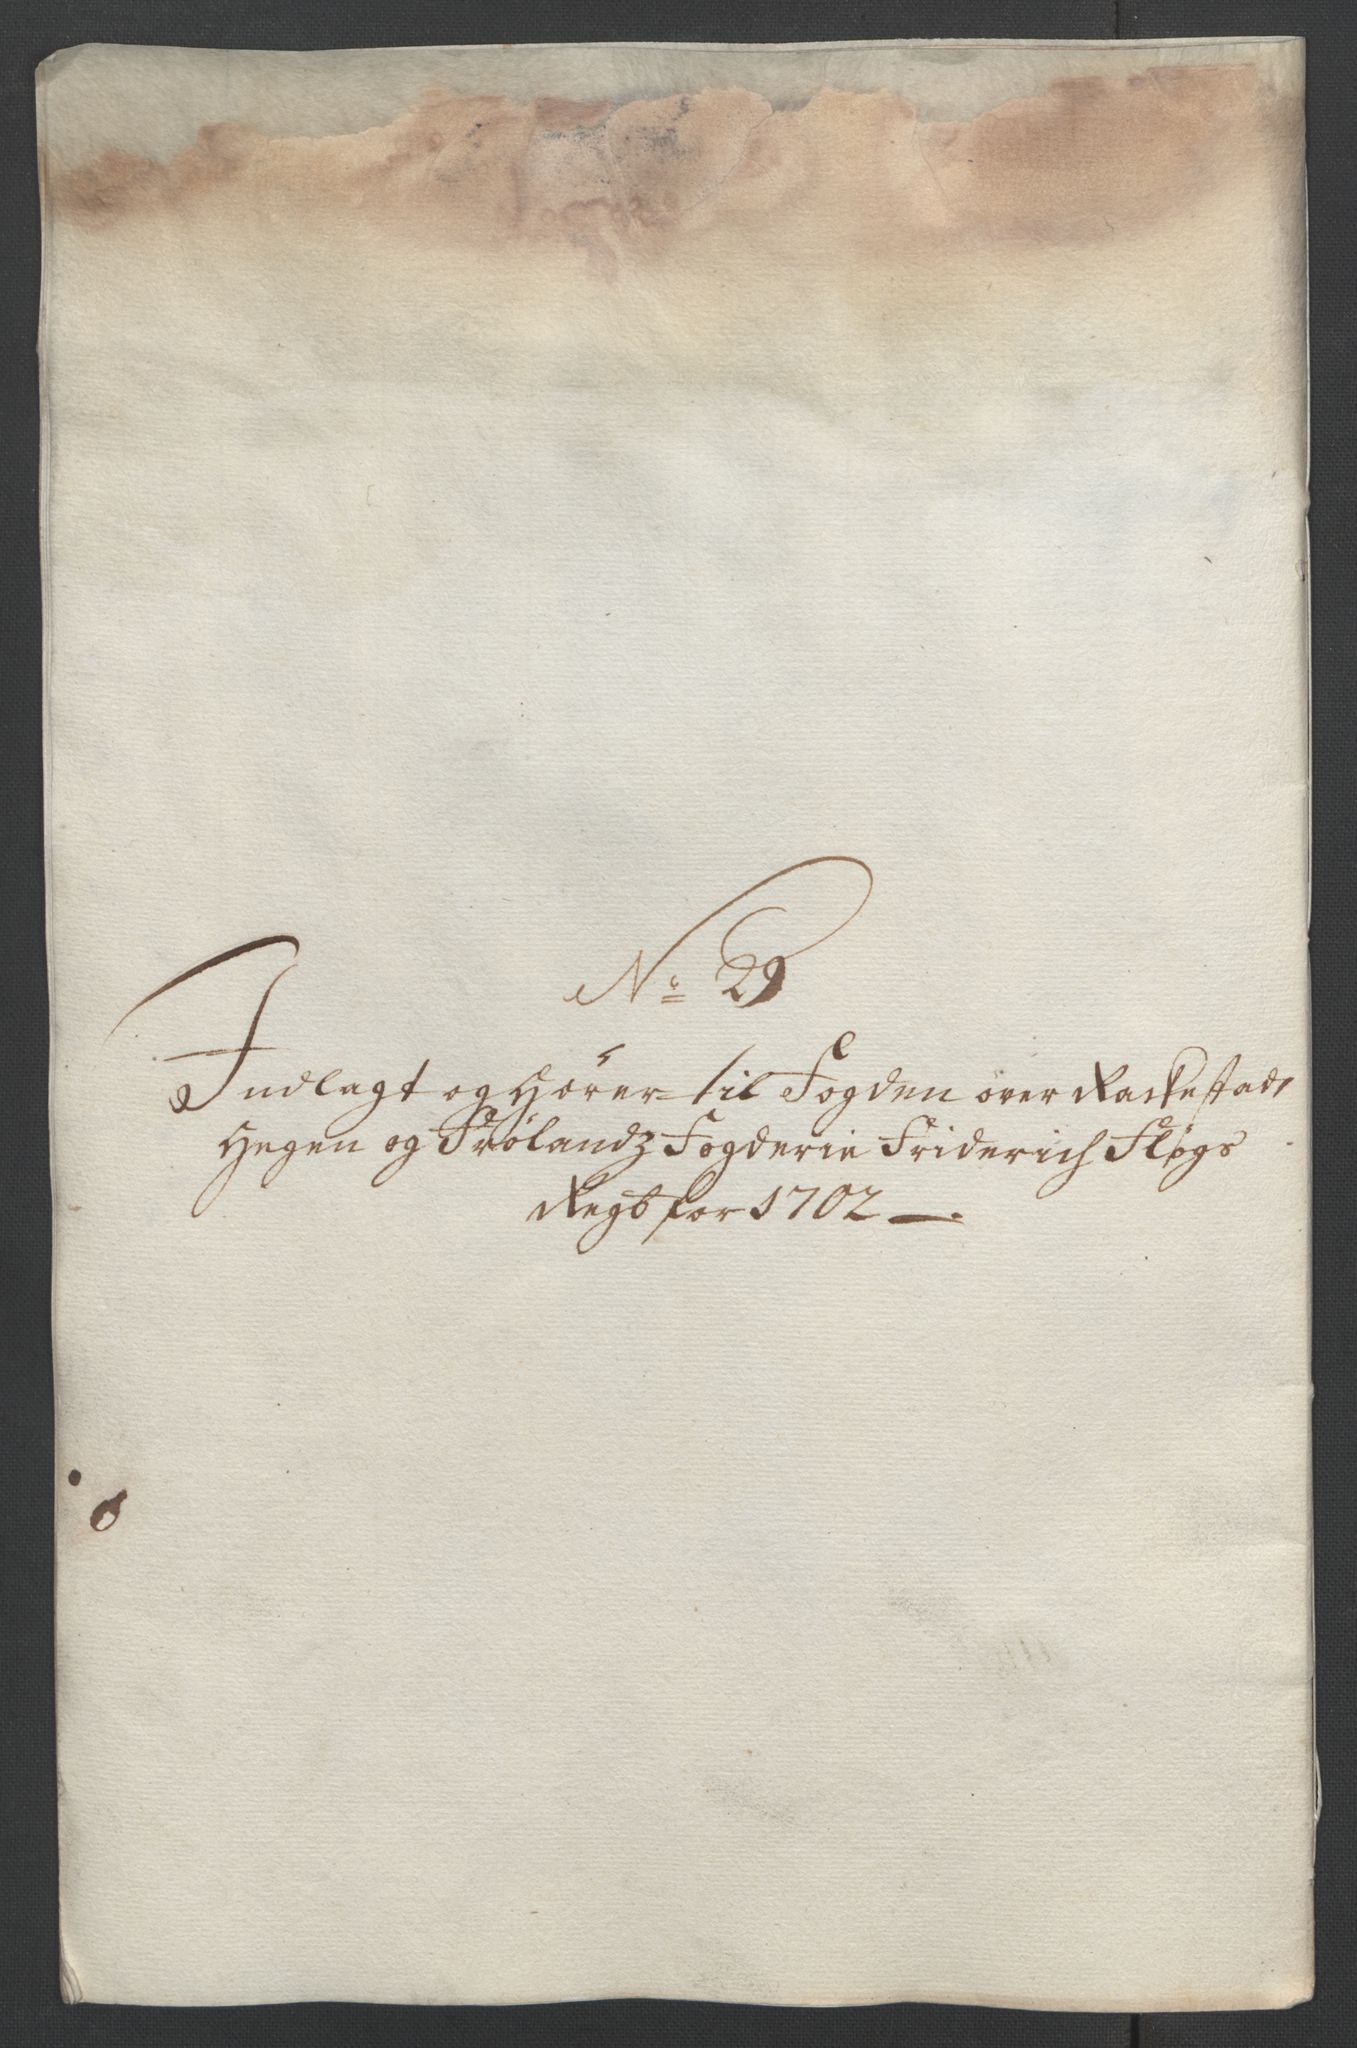 No 29
Indlagt og Hörer til Fogden över Rackestad
Hegen og Frölandz Fogderie Friderich Fløgs
Regb for 1702 —.